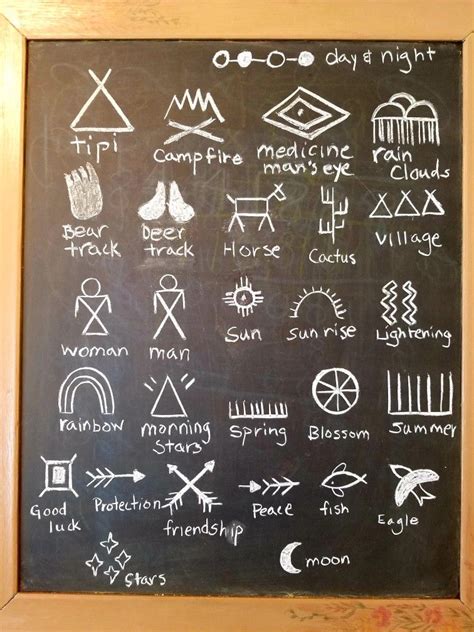 day & night
tipi
Campfire
medicine
man's eye
rain
Clouds
Bear
track
Deer
track
Horse
Cactus
Village
woman
man
Sun
Sun rise
Lightening
rainbow
morning
Stars
Spring
Blossom
Summer
Good
luck
Protection
friendship
Peace
fish
Eagle
Stars
moon